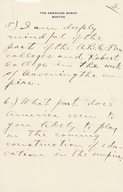 THE AMERICAN BOARD
BOSTON
3.
5) I am deeply
mindful of the
part of the A.B.C.F.M.
colleges and Robert
College in the work
of leavening the em-
pire.
6) What part does
America seem to
you likely to play
in the coming
construction of edu-
cation in the empire